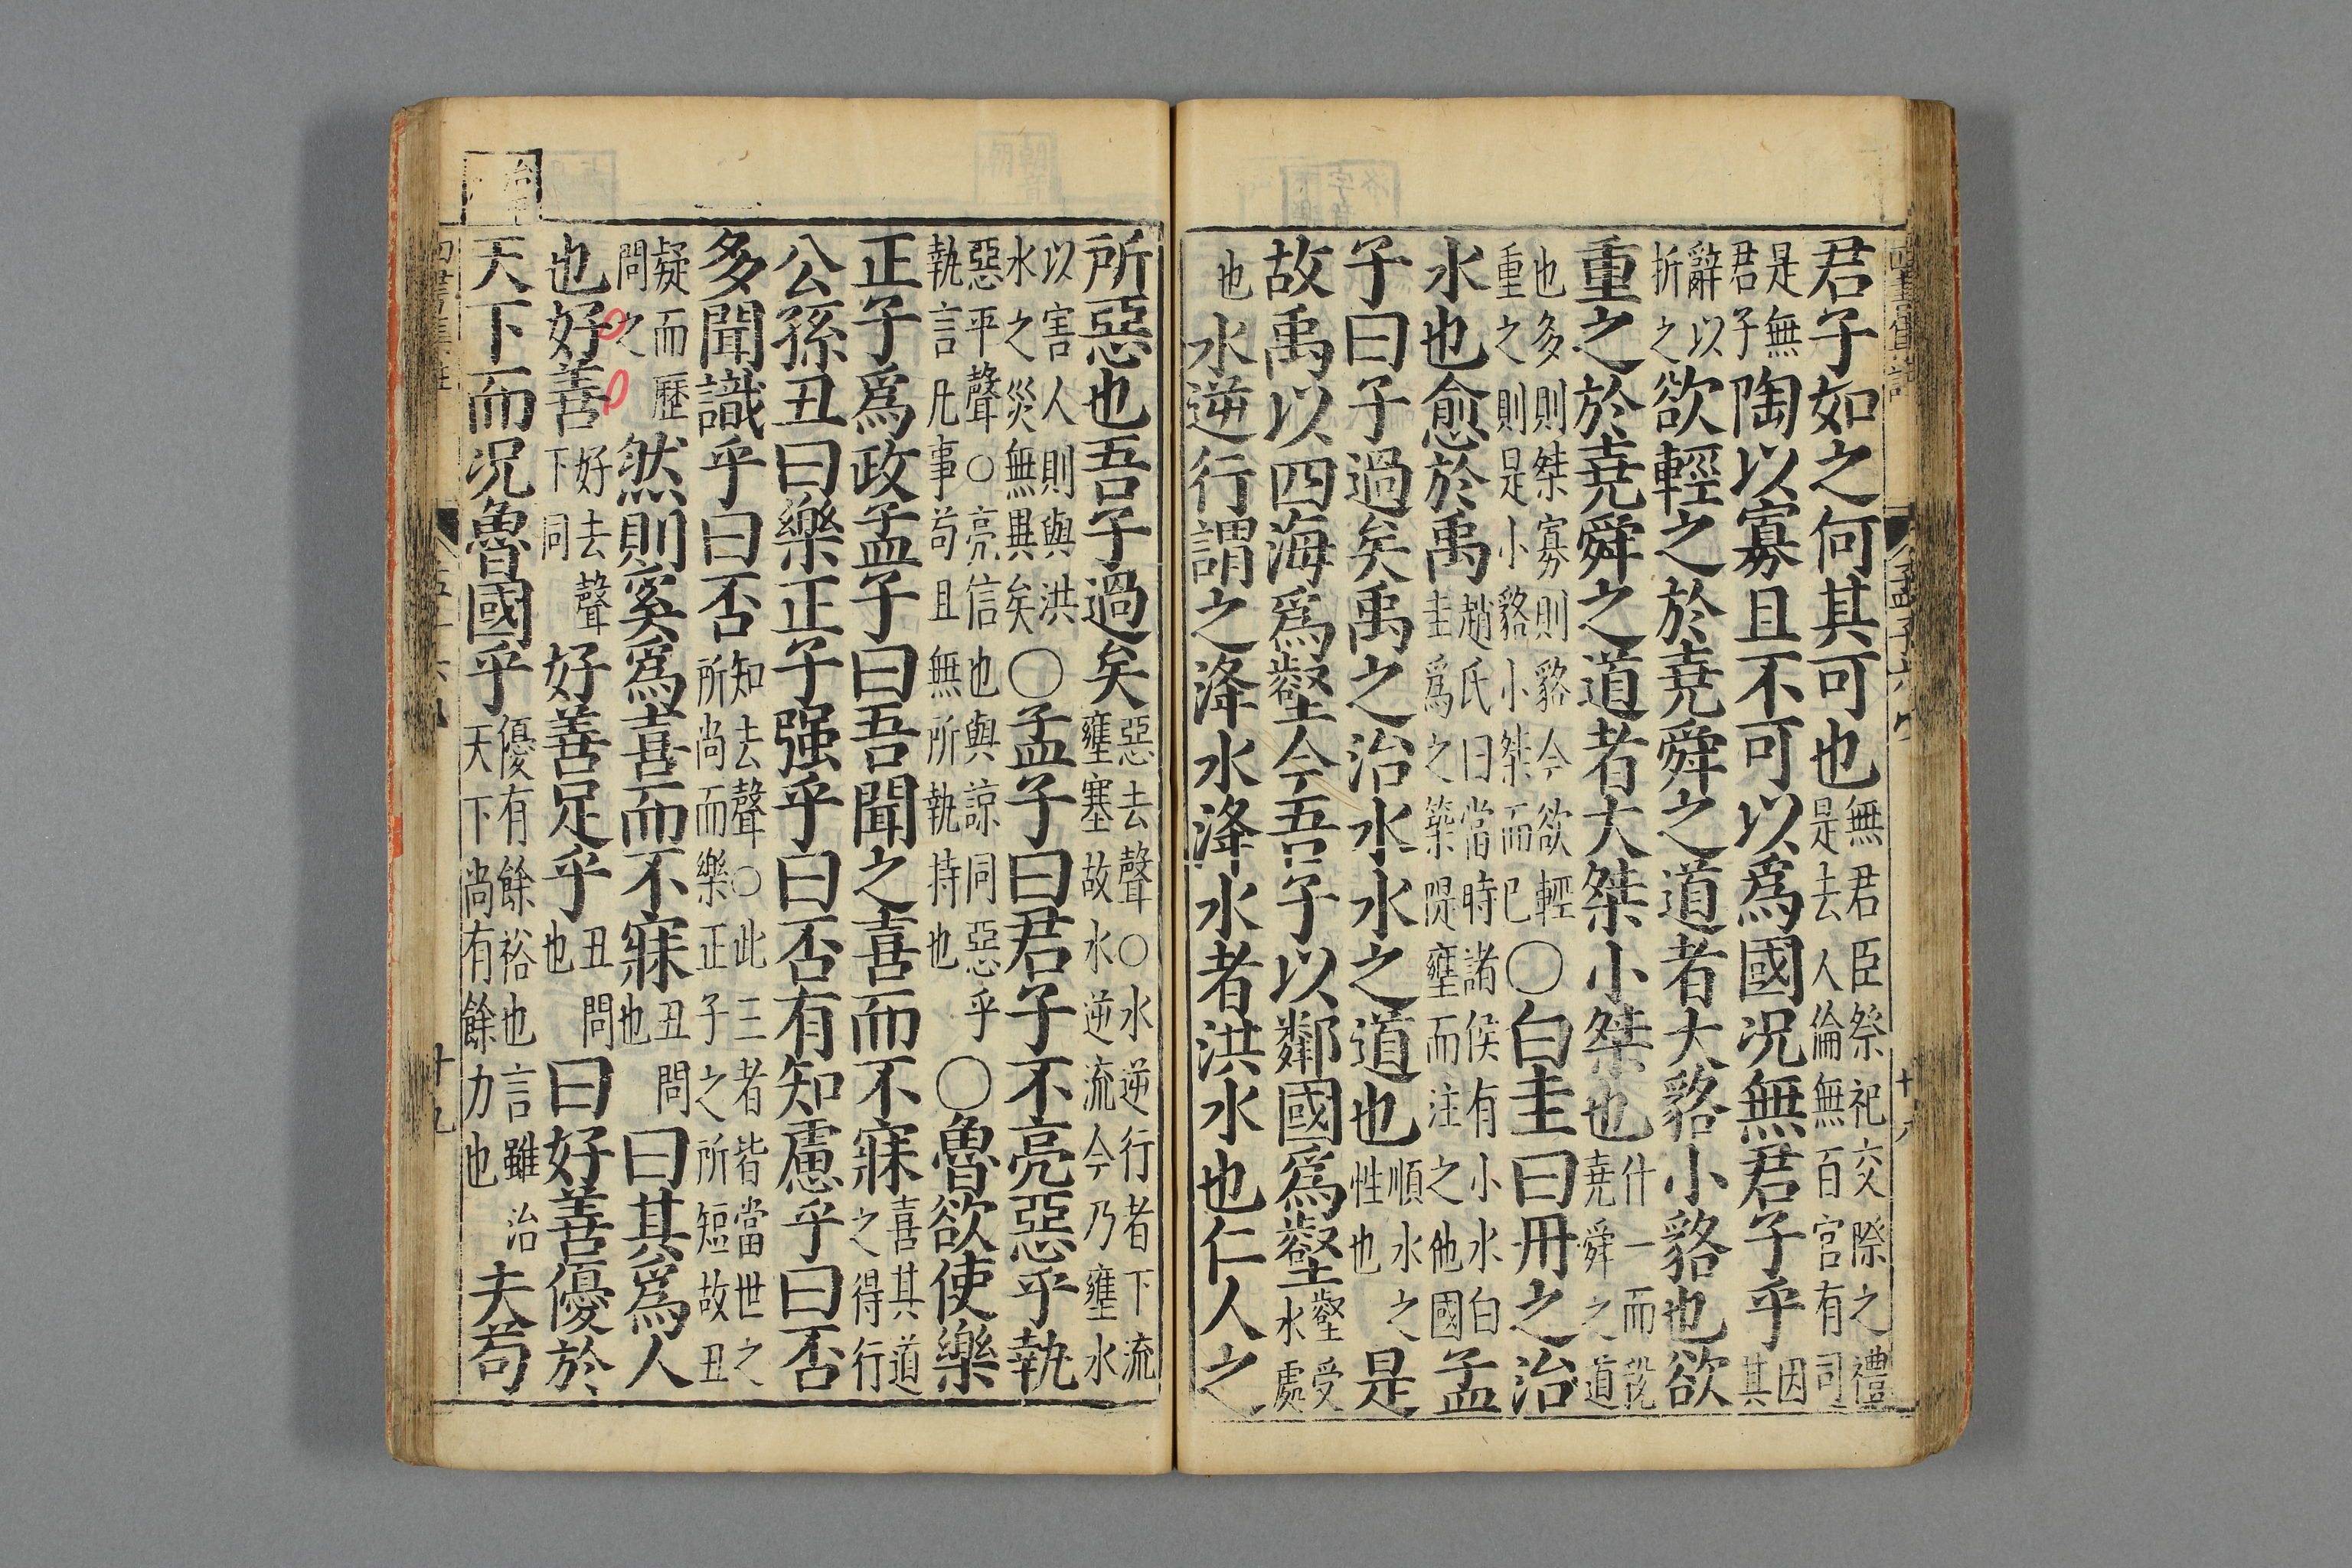 君子如之何其可也無君臣祭祀交際之禮是去人倫無百官有司
是無君子陶以寡且不可以爲國况無君子乎因其
辭以折之欲輕之於堯舜之道者大貉小貉也欲
重之於堯舜之道者大桀小桀也什一而稅堯舜之道
也多則桀寡則貉今欲輕重之則是小貉小桀而已○白圭曰丹之治
水也愈於禹趙氏曰當時諸侯有小水白圭爲之築隄壅而注之他國孟
子曰子過矣禹之治水水之道也順水之性也是
故禹以四海爲壑今吾子以鄰國爲壑壑受水處
也水逆行謂之洚水洚水者洪水也仁人之
所惡也吾子過矣惡去聲○水逆行者下流壅塞故水逆流今乃壅水
以害人則與洪水之災無異矣○孟子曰君子不亮惡乎執
惡平聲○亮信也與諒同惡乎執言凡事苟且無所執持也○魯欲使樂
正子爲政孟子曰吾聞之喜而不寐喜其道之得行
公孫丑曰樂正子强乎曰否有知慮乎曰否
多聞識乎曰否知去聲○此三者皆當世之所尚而樂正子之所短故丑
疑而歷問之然則奚爲喜而不寐丑問也曰其爲人
也好善好去聲下同好善足乎丑問也曰好善優於
天下而况魯國乎優有餘裕也言雖治天下尚有餘力也夫苟
十九